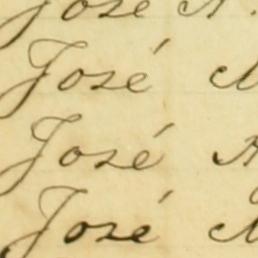 José A.
José M
José A
José M